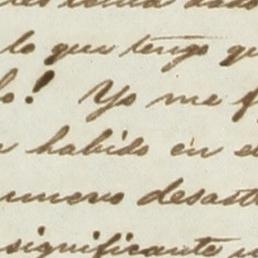 lo que tengo qu
lo! Yo me f
a habido en e
nuevo desast
significante